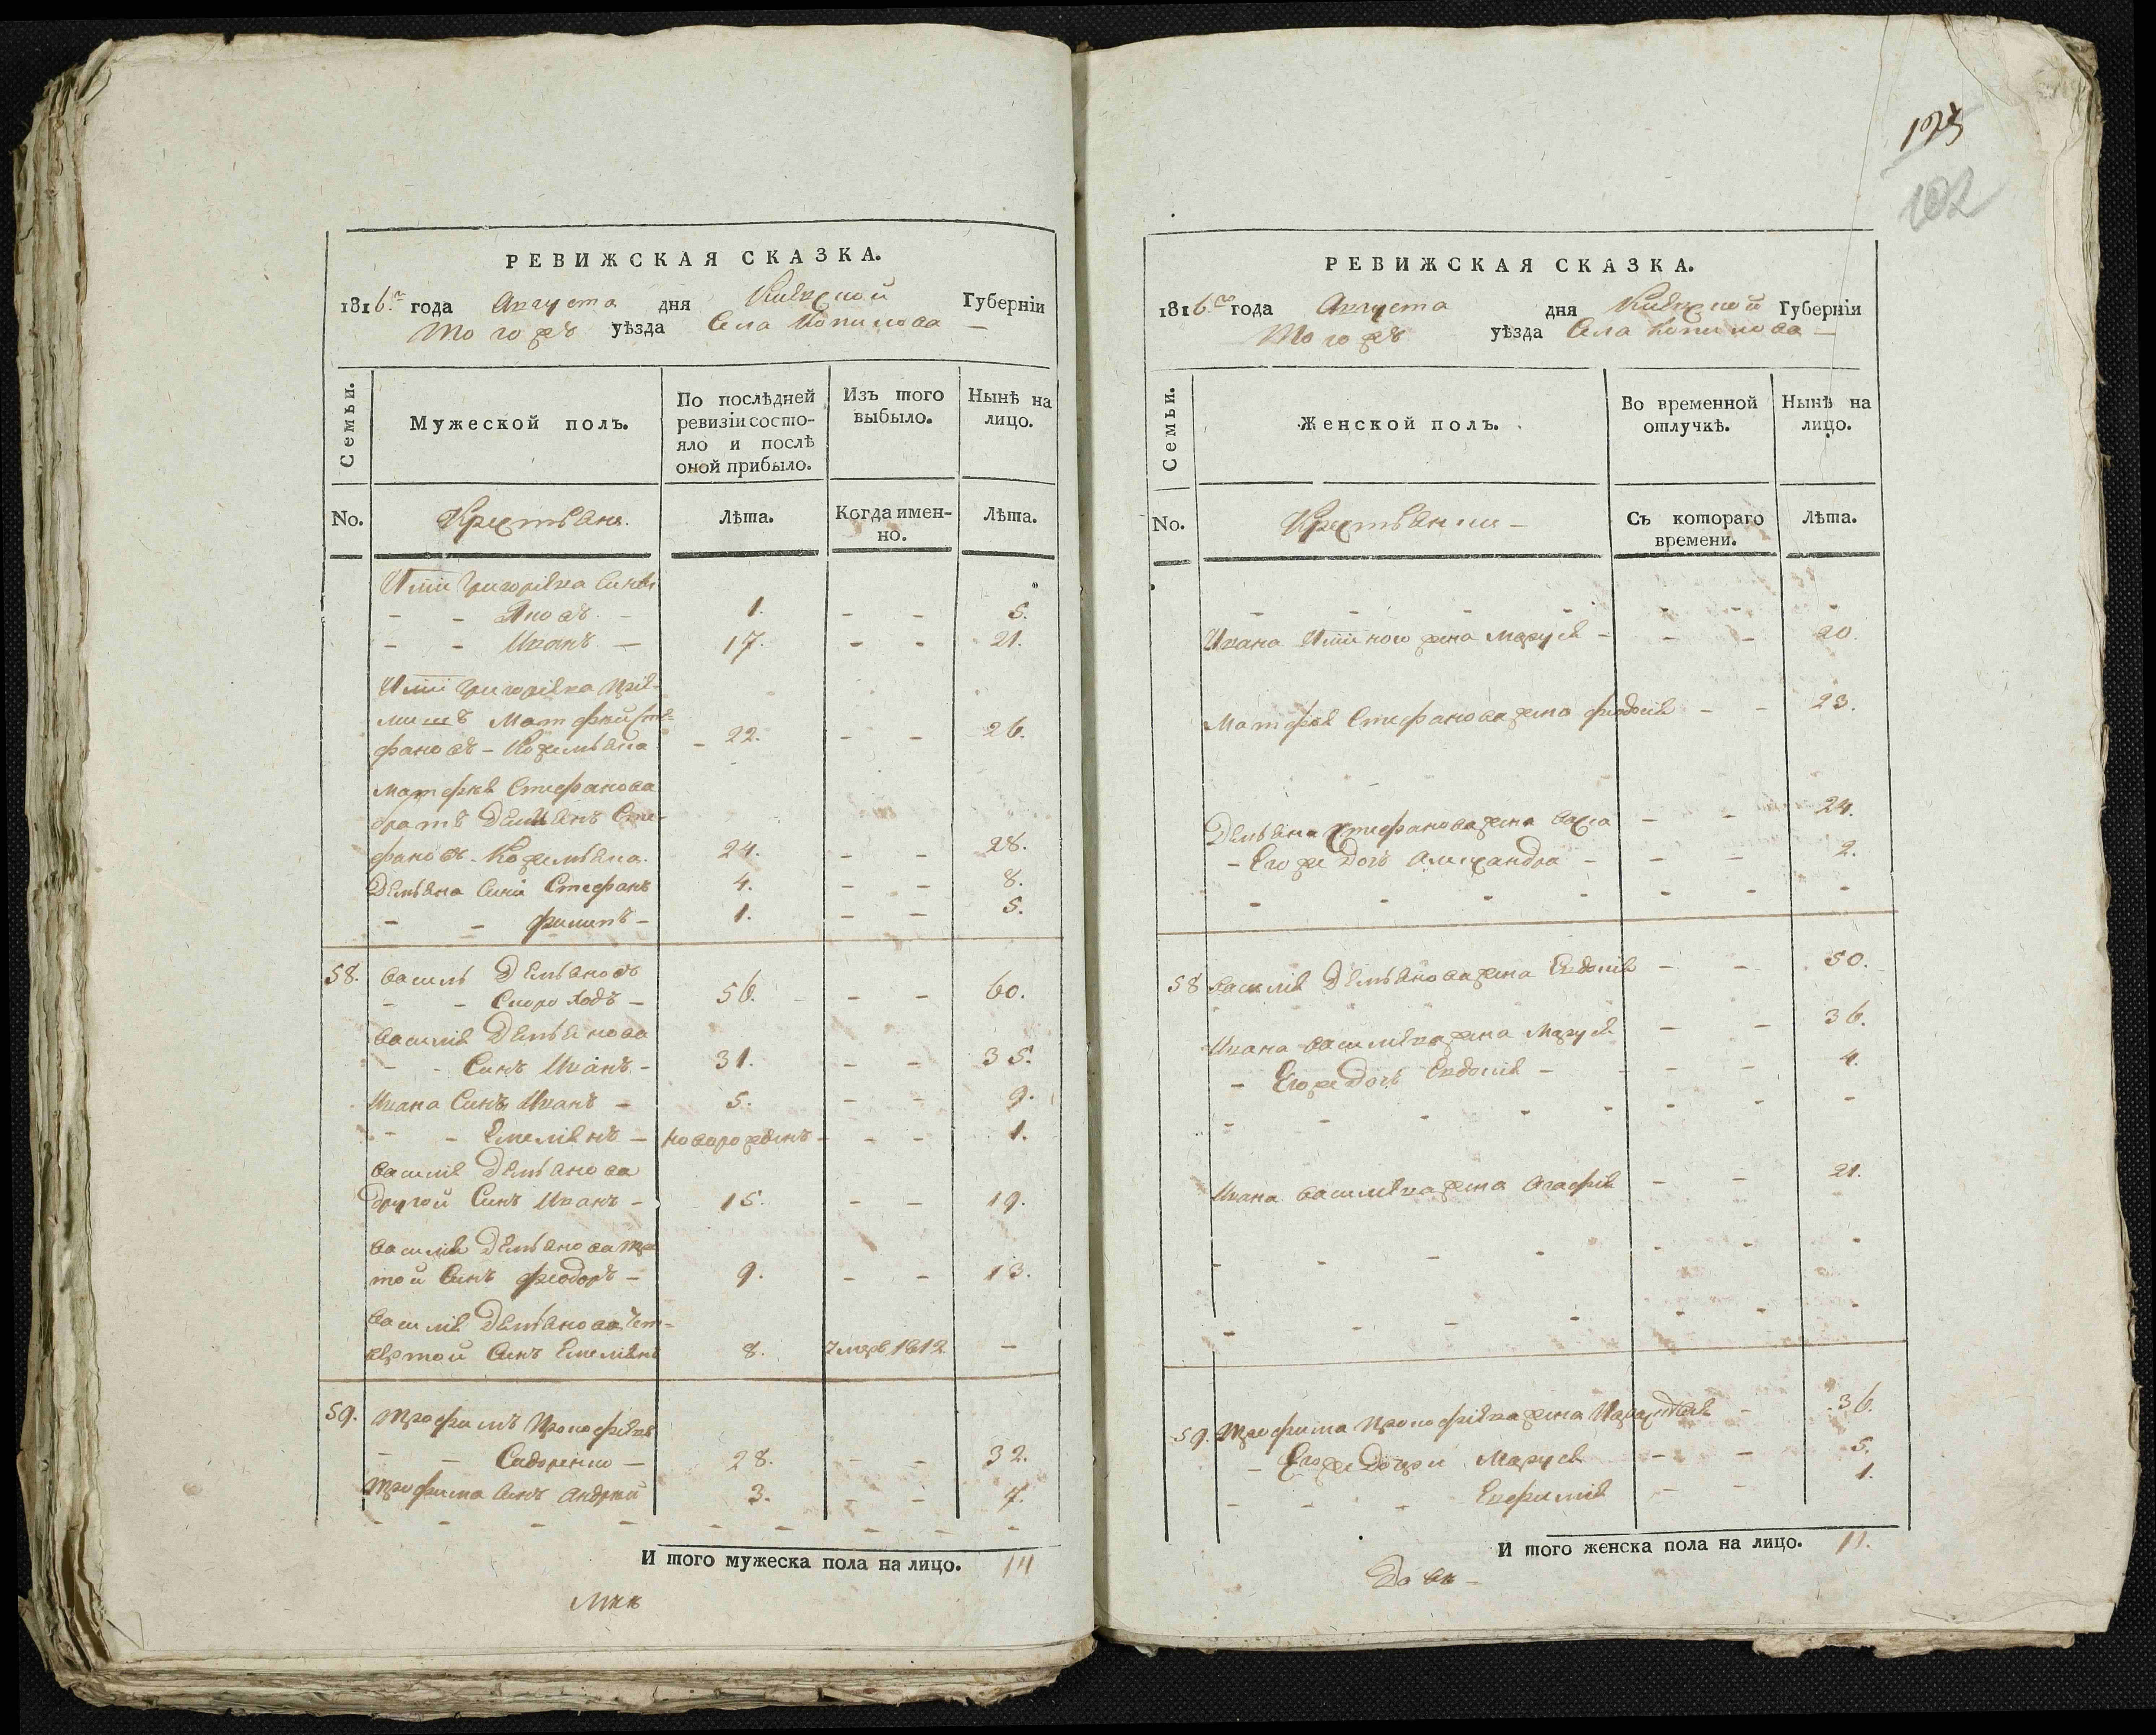 РЕВИЖСКАЯ СКАЗКА.
1816го года Августа дня Киевской Губерніи
Тогожъ уѣзда Села Копилова —
Семьи.
Мужеской полъ.
По послѣдней ревизіи состо-
яло и послѣ
оной прибыло.
Изъ того
выбыло.
Нынѣ на
лицо.
No.
Крестьяне.
Лѣта.
Когда имен-
но.
Лѣта.
Григоріева Сини
- - Яковъ - 1. - - 5.
- - Иванъ - 17. - - 21.
Григоріева прій-
мишъ Матфей Сте-
фановъ - 22. - - 26.
Матфея Стефанова
братъ Демянъ Сте-
фановъ 24. - - 28.
Демяна Сини Стефанъ 4. - - 8.
- - Филипъ - 1. - - 5.
58. Василь Демяновъ
- - Скороходъ - 56. - - 60.
Василія Демянова
- - Синъ Иванъ - 31. - - 35.
Ивана Синъ Иванъ - 5. - - 9.
- - Емеліянъ - новорожденъ - - - 1.
Василія Демянова
другой Синъ Иванъ - 15. - - 19.
Василія Демянова тре
той Синъ Феодоръ - 9. - - 13.
Василія Демянова Чет-
вертой Синъ Емеліянъ 8. Умеръ 1812 -
59. Трофимъ Прокофіевъ
- - Сидоренко - 28. - - 32.
Трофима Синъ Андрей 3. - - 7.
И того мужеска пола на лицо. 14
103
102
РЕВИЖСКАЯ СКАЗКА.
1816го года Августа дня Киевской Губерніи
Тогожъ уѣзда Села Копилова —
Семьи.
Женской полъ.
Во временной
отлучкѣ.
Нынѣ на
лицо.
No.
Крестьянки -
Съ котораго
времени.
Лѣта.
Ивана жена Маруся - - - 20.
Матфея Стефанова жена Феодосія - - 23.
Демяна Стефанова жена Васса - - 24.
- Его же Дочь Александра - - - 2.
58 Василія Демянова жена Евдокія - - 50.
Ивана Василіева жена Маруся - - 36.
- Его же Дочь Евдокія - - - 4.
Ивана Василіева жена Агафія - - 21.
59. Трофима Прокофіева жена - 36.
- Его же Дочери Маруся - - 5.
- - - Евфимія - - 1.
И того женска пола на лицо. 11.